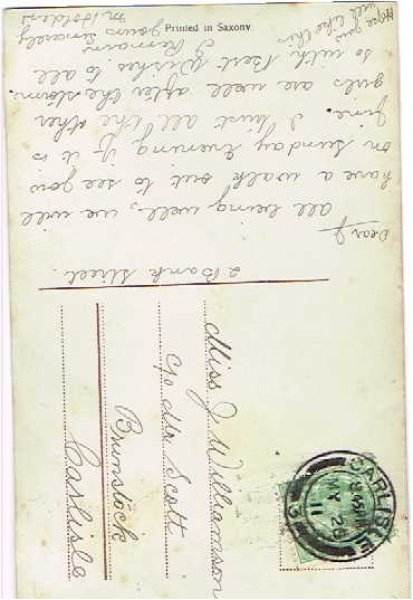 2 Bank Street.
Dear J
all being well, we will
have a walk out to see you
on Sunday Evening if it is
fine. I trust all the other
girls are well after the storm.
so with Best Wishes to all
I Remain
yours sincerely
M Holden
Hope you
will like this
Printed in Saxony
Miss J Williamson
c/o Mr Scott
Brunstock
Carlisle
CARLISLE
MY 26
11
3